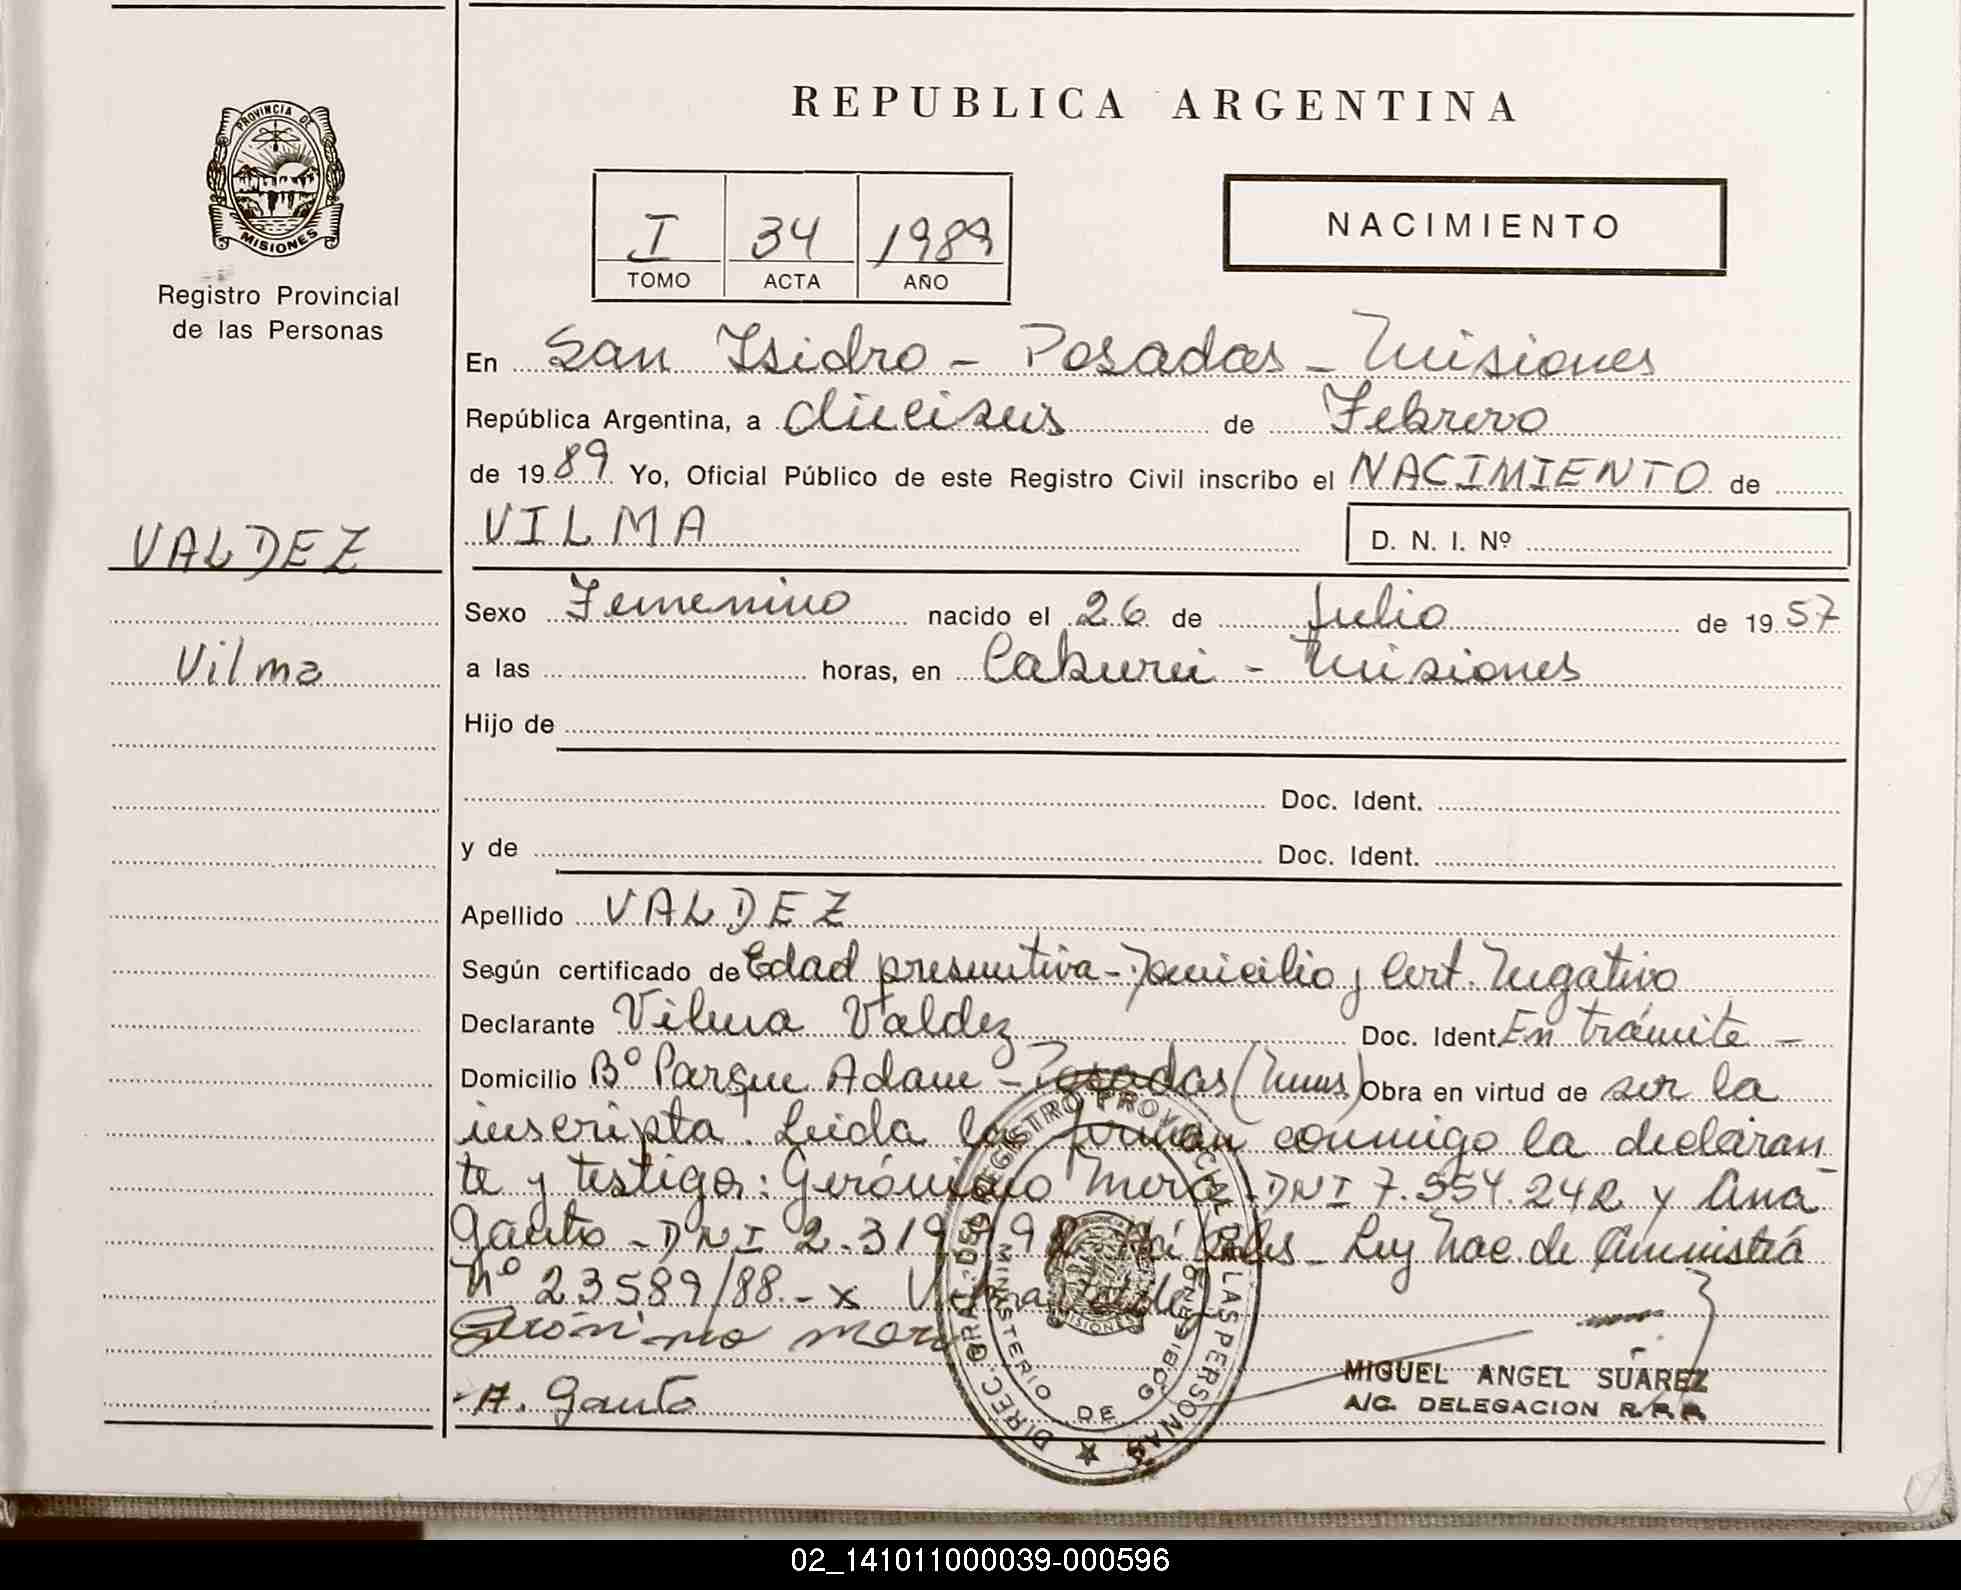 REPUBLICA ARGENTINA
PROVINCIA DE
MISIONES
Registro Provincial
de las Personas
I 34 1989
TOMO ACTA AÑO
NACIMIENTO
En San Isidro - Posadas - Misiones
República Argentina, a dieciseis de Febrero
de 1989 Yo, Oficial Público de este Registro Civil inscribo el NACIMIENTO de
VILMA D. N. I. Nº
VALDEZ
Vilma
Sexo Femenino nacido el 26 de Julio de 1957
a las horas, en Caburei - Misiones
Hijo de
Doc. Ident.
y de Doc. Ident.
Apellido VALDEZ
Según certificado de Edad presuntiva - Domicilio y Cert. Negativo
Declarante Vilma Valdez Doc. Ident. En trámite -
Domicilio Bº Parque Adam - Posadas (Mnes) Obra en virtud de ser la
inscripta. Leida la firman conmigo la declaran-
te y testigos: Gerónimo DNI 7.554.242 y Ana
Gauto - DNI 2.319.9 Ley Nac. de Amnistiá
Nº 23589/88.- x Vilma Valdez
Gerónimo
A. Gauto
DIREC. GRAL. DEL REGISTRO PROVINCIAL DE LAS PERSONAS
MINISTERIO DE GOBIERNO
MISIONES
MIGUEL ANGEL SUÁREZ
A/C. DELEGACION R.P.P.
02_141011000039-000596